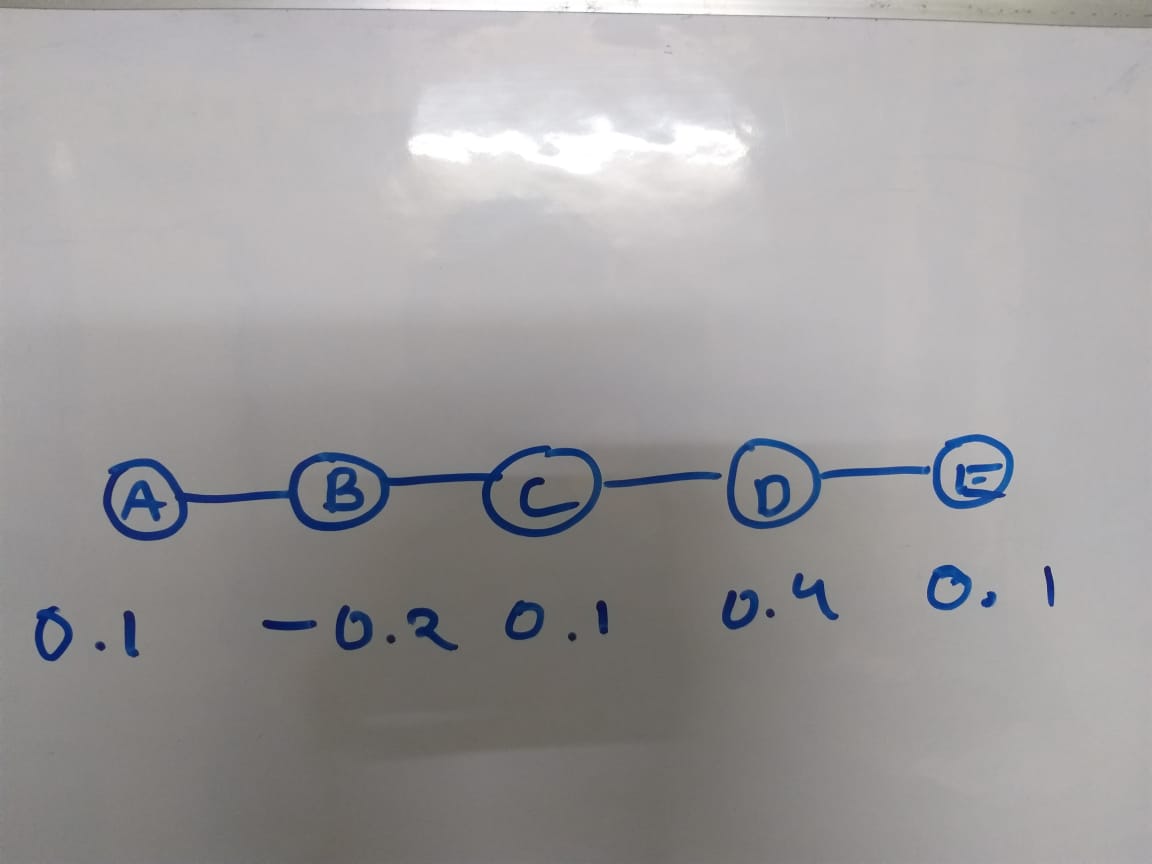 A B C D E
0.1 -0.2 0.1 0.4 0.1